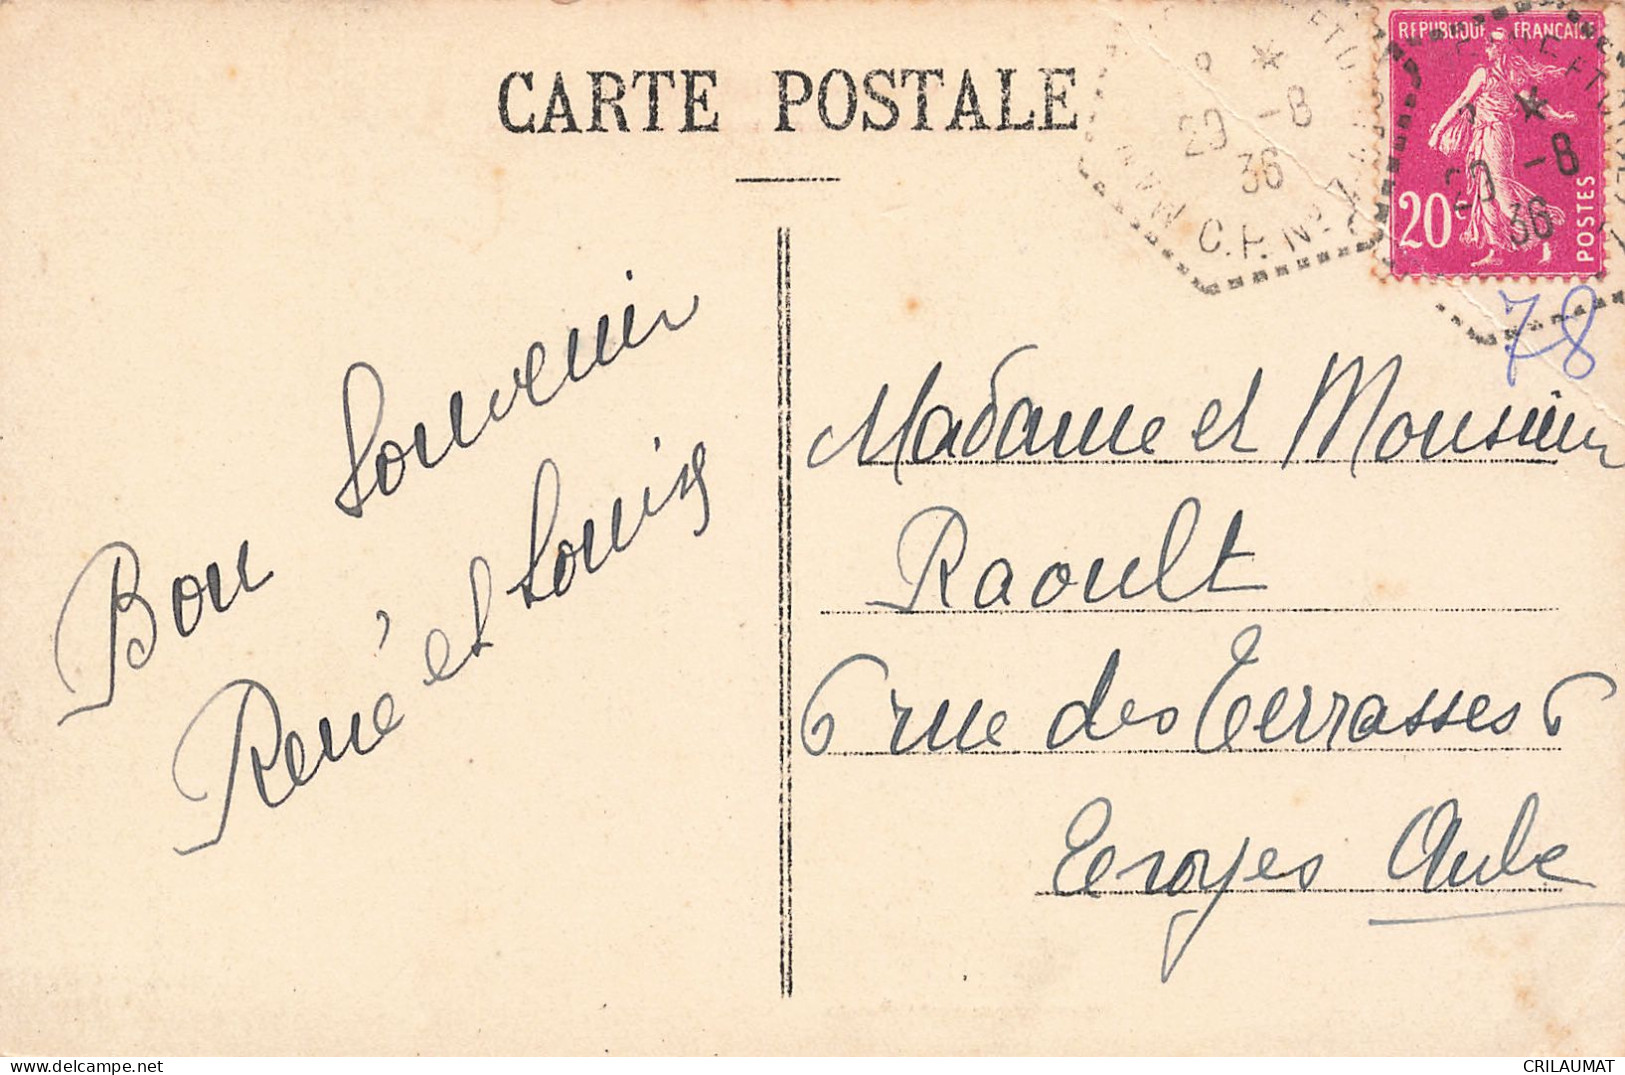 CARTE POSTALE
20 -8
36
C.P. N°
RÉPUBLIQUE FRANÇAISE
20c
POSTES
20 -8
36
78
Bon Souvenir
René et Louis
Madame et Monsieur
Raoult
6 rue des Terrasses 6
Troyes Aube
CRILAUMAT